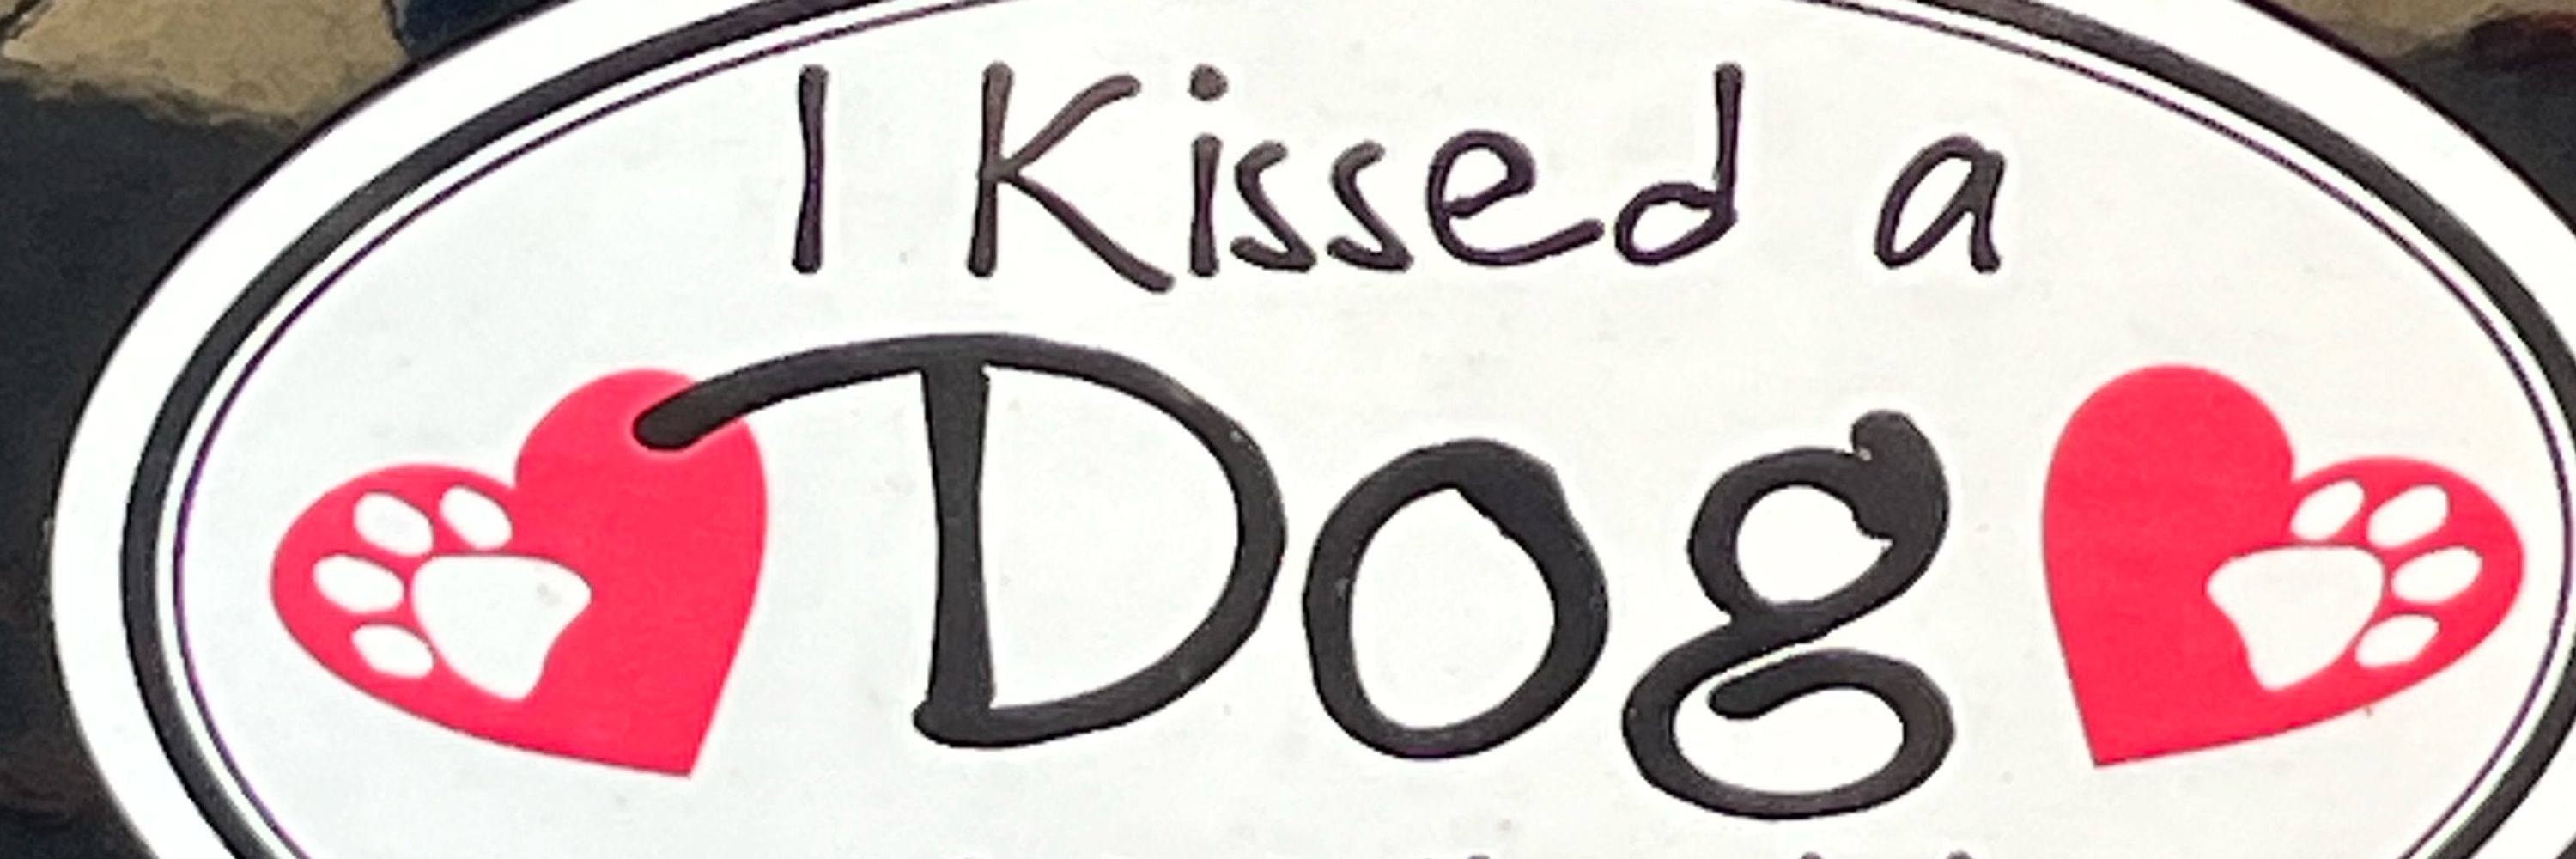 I Kissed a
Dog